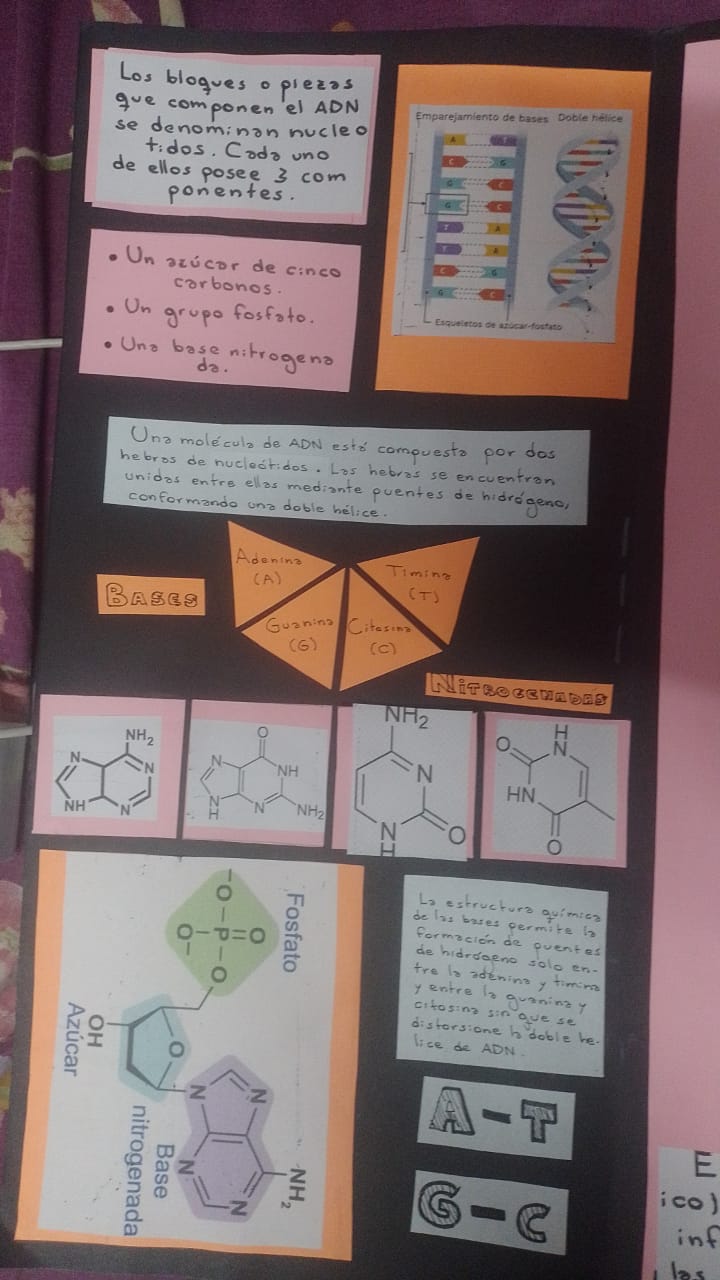 Los bloques o piezas
que componen el ADN
se denominan nucleo
tidos. Cada uno
de ellos posee 3 com
ponentes.
• Un azúcar de cinco
carbonos.
• Un grupo fosfato.
• Una base nitrogena
da.
Emparejamiento de bases Doble hélice
A
C G
G C
G C
T A
T A
C G
G C
Esqueletos de azúcar-fosfato
Una molécula de ADN está compuesta por dos
hebras de nucleótidos. Las hebras se encuentran
unidas entre ellas mediante puentes de hidrógeno,
conformando una doble hélice.
BASES
Adenina
(A)
Guanina
(G)
Citosina
(C)
Timina
(T)
NITROGENADAS
NH2
N
N
NH
N
O
N
NH
N
H
N
NH2
NH2
N
N
H
O
H
N
O
HN
O
Fosfato
O
-O-P-O
O-
O
OH
Azúcar
Base
nitrogenada
N
N
N
N
NH2
La estructura química
de las bases permite la
formación de puentes
de hidrógeno solo en-
tre la adenina y timina
y entre la guanina y
citosina sin que se
distorsione la doble he-
lice de ADN.
A-T
G-C
E
ico)
inf
las